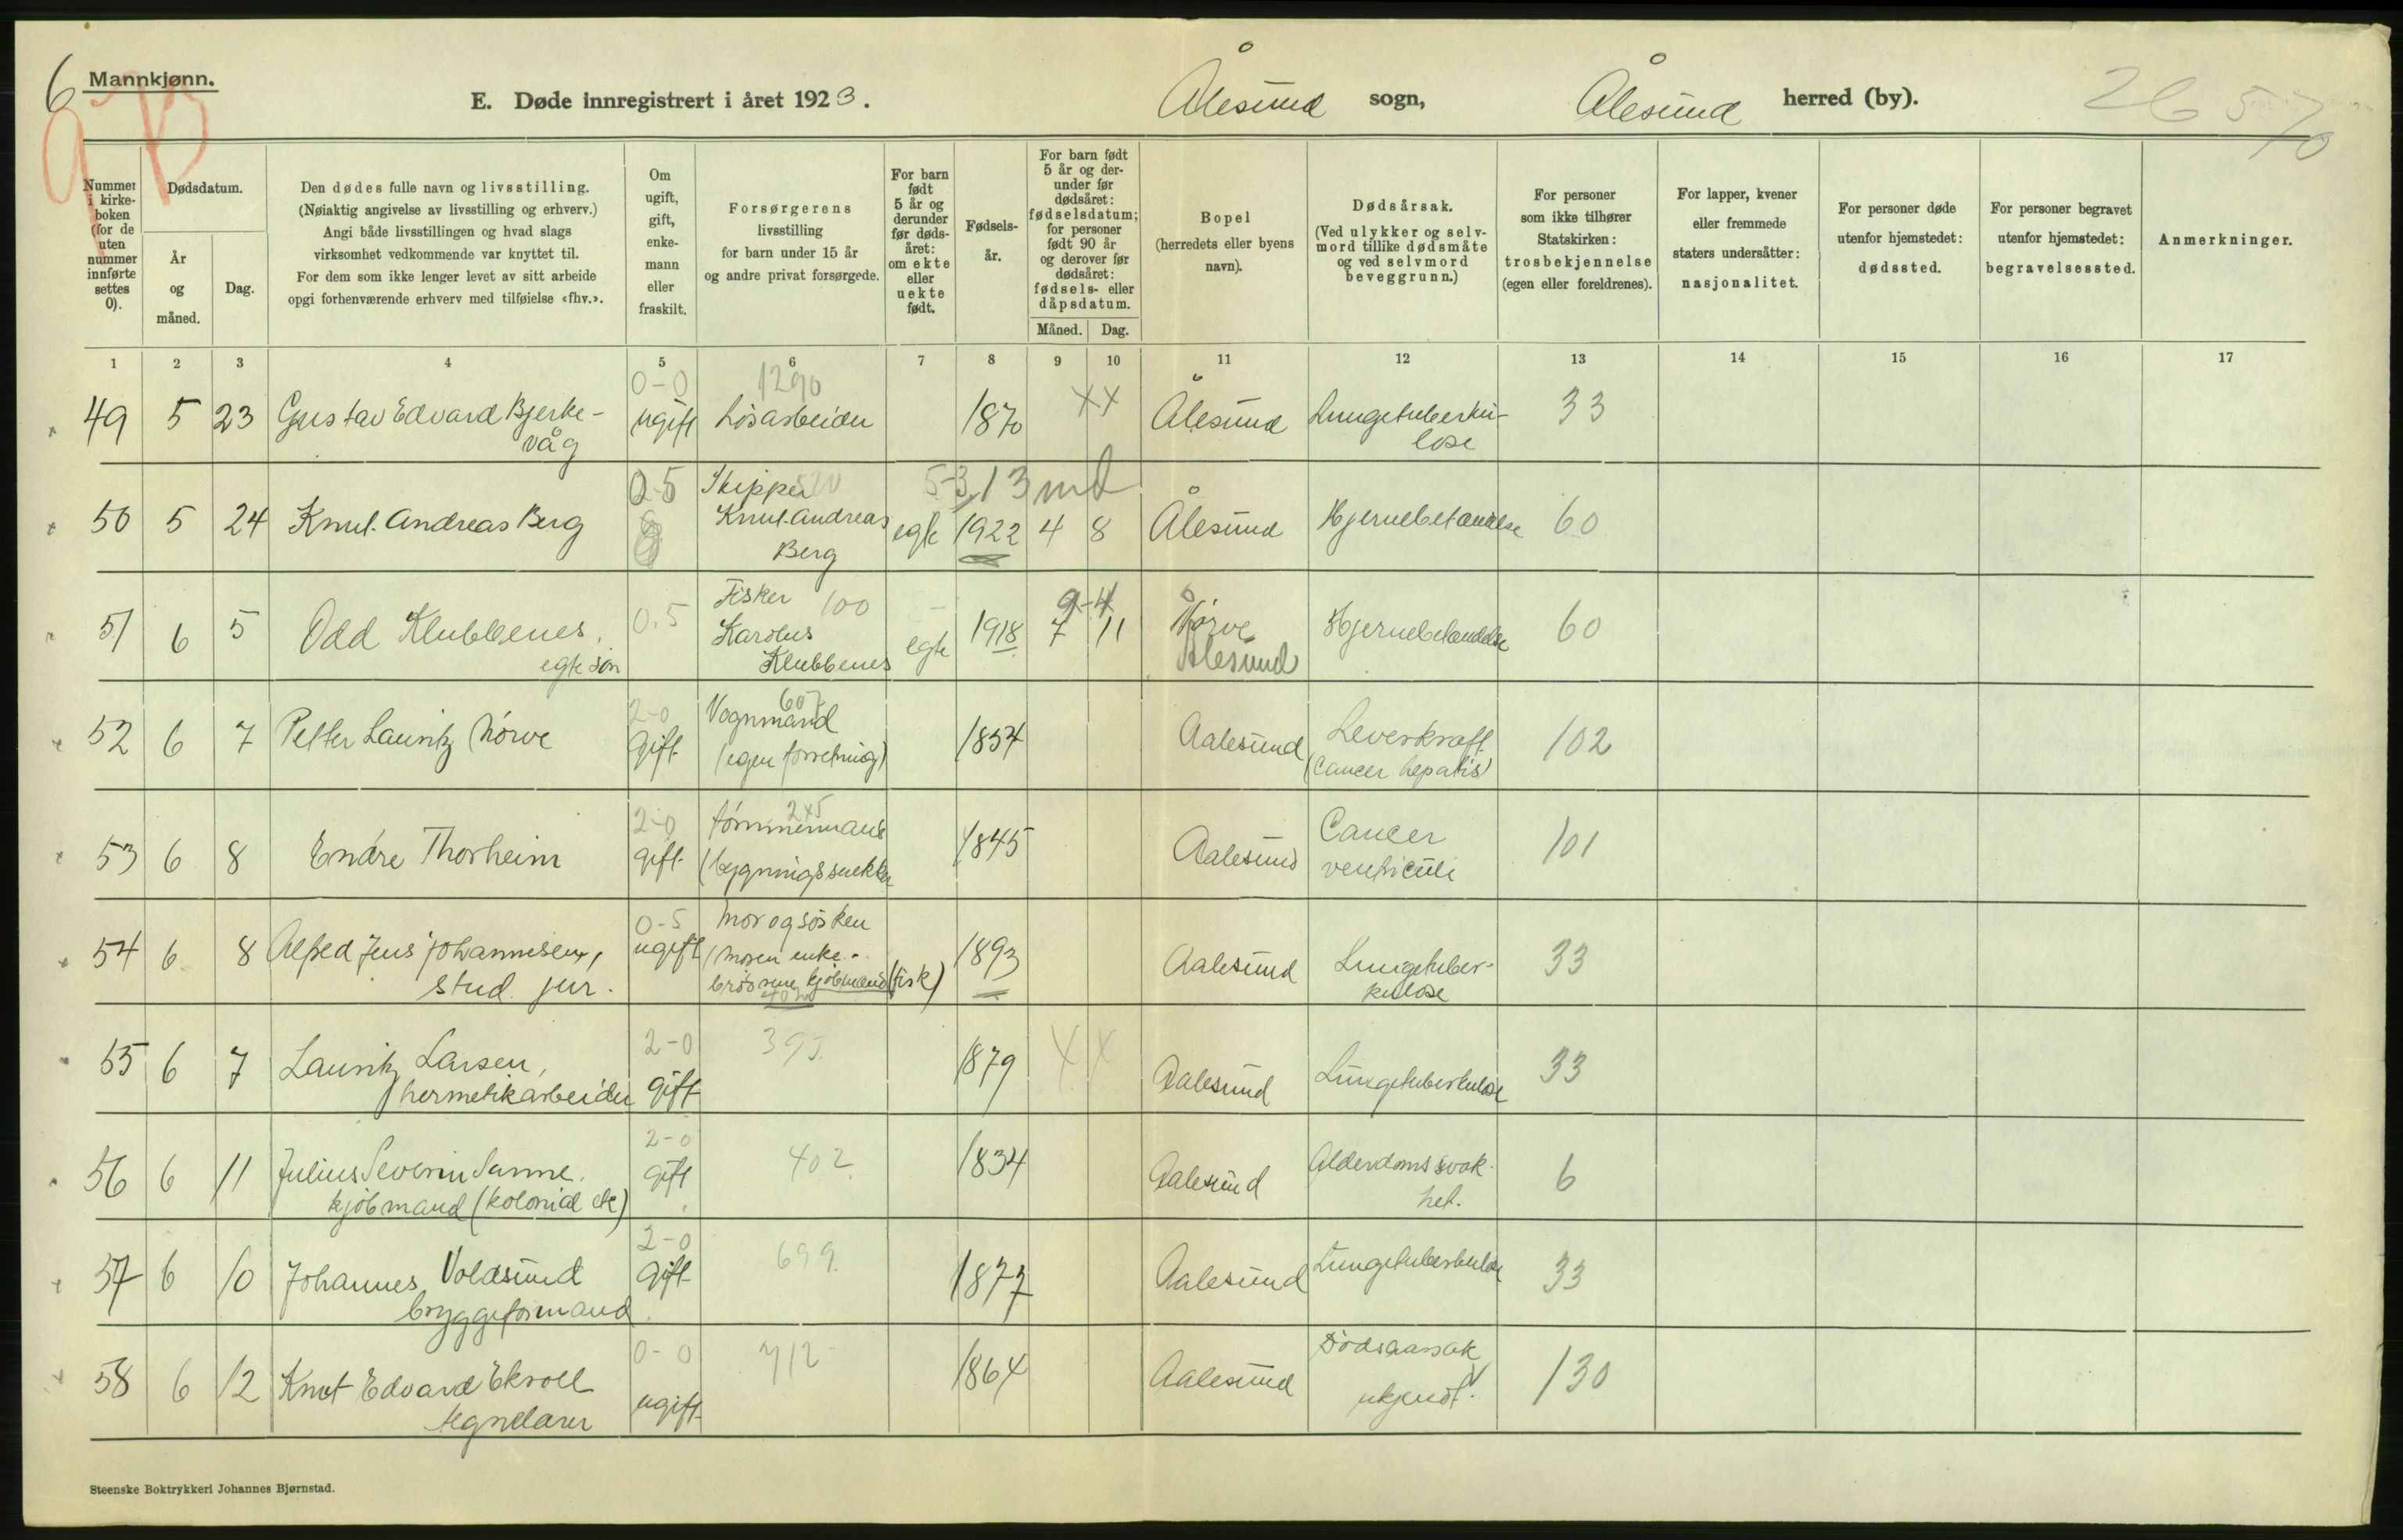 6 Mannkjønn.
9B
E. Døde innregistrert i året 1923. Ålesund sogn, Ålesund herred (by). 26 5/70
Nummer i kirke-boken (for de uten nummer innførte settes 0).
Dødsdatum.
År og måned.
Dag.
Den dødes fulle navn og livsstilling.
(Nøiaktig angivelse av livsstilling og erhverv.)
Angi både livsstillingen og hvad slags
virksomhet vedkommende var knyttet til.
For dem som ikke lenger levet av sitt arbeide
opgi forhenværende erhverv med tilføielse «fhv.».
Om ugift, gift, enke-mann eller fraskilt.
Forsørgerens
livsstilling
for barn under 15 år
og andre privat forsørgede.
For barn født 5 år og derunder før døds-året: om ekte eller uekte født.
Fødsels-år.
For barn født 5 år og der-under før dødsåret: fødselsdatum; for personer født 90 år og derover før dødsåret: fødsels- eller dåpsdatum.
Måned. Dag.
Bopel
(herredets eller byens
navn).
Dødsårsak.
(Ved ulykker og selv-
mord tillike dødsmåte
og ved selvmord
beveggrunn.)
For personer
som ikke tilhører
Statskirken:
trosbekjennelse
(egen eller foreldrenes).
For lapper, kvener
eller fremmede
staters undersåtter:
nasjonalitet.
For personer døde
utenfor hjemstedet:
dødssted.
For personer begravet
utenfor hjemstedet:
begravelsessted.
Anmerkninger.
1 2 3 4 5 6 7 8 9 10 11 12 13 14 15 16 17
0-0 1290
49 5 23 Gustav Edvard Bjerke- ugift Løsarbeider 1870 XX Ålesund Lungetuberku- 33
våg lose
0-5 Skipper 520 5-3 13 md
50 5 24 Knut Andreas Berg Knut Andreas egte 1922 4 8 Ålesund Hjernebetændelse 60
Berg
Fisker 100 9-4
51 6 5 Odd Klubbenes, 0.5 Karolus egte 1918 7 11 Nørve Hjernebetændelse 60
egte søn Klubbenes Ålesund
2-0 Vognmand 607
52 6 7 Petter Lauritz Nørve gift (egen forretning) 1854 Aalesund Leverkræft 102
(Cancer hepatis)
2-0 tømmermand 245
53 6 8 Endre Thorheim gift (bygningssnekker 1845 Aalesund Cancer 101
ventriculi
0-5 mor og søsken
54 6 8 Alfred Jens Johannesen, ugift (moren enke - 1893 Aalesund Lungetuber- 33
stud. jur. brødrene kjøbmænd (fisk) kulose
2-0 393
55 6 7 Lauritz Larsen, gift 1879 XX Aalesund Lungetuberkulose 33
hermetikarbeider
2-0
56 6 11 Julius Severin Sanne, gift 402 1834 Aalesund Alderdomssvak- 6
kjøbmand (kolonial etc) het.
2-0 699
57 6 10 Johannes Voldsund gift 1877 Aalesund Lungetuberkulose 33
bryggeformand
0-0 712
58 6 12 Knut Edvard Ekroll ugift 1864 Aalesund Dødsaarsak 130
tegnelærer ukjendt.
Steenske Boktrykkeri Johannes Bjørnstad.